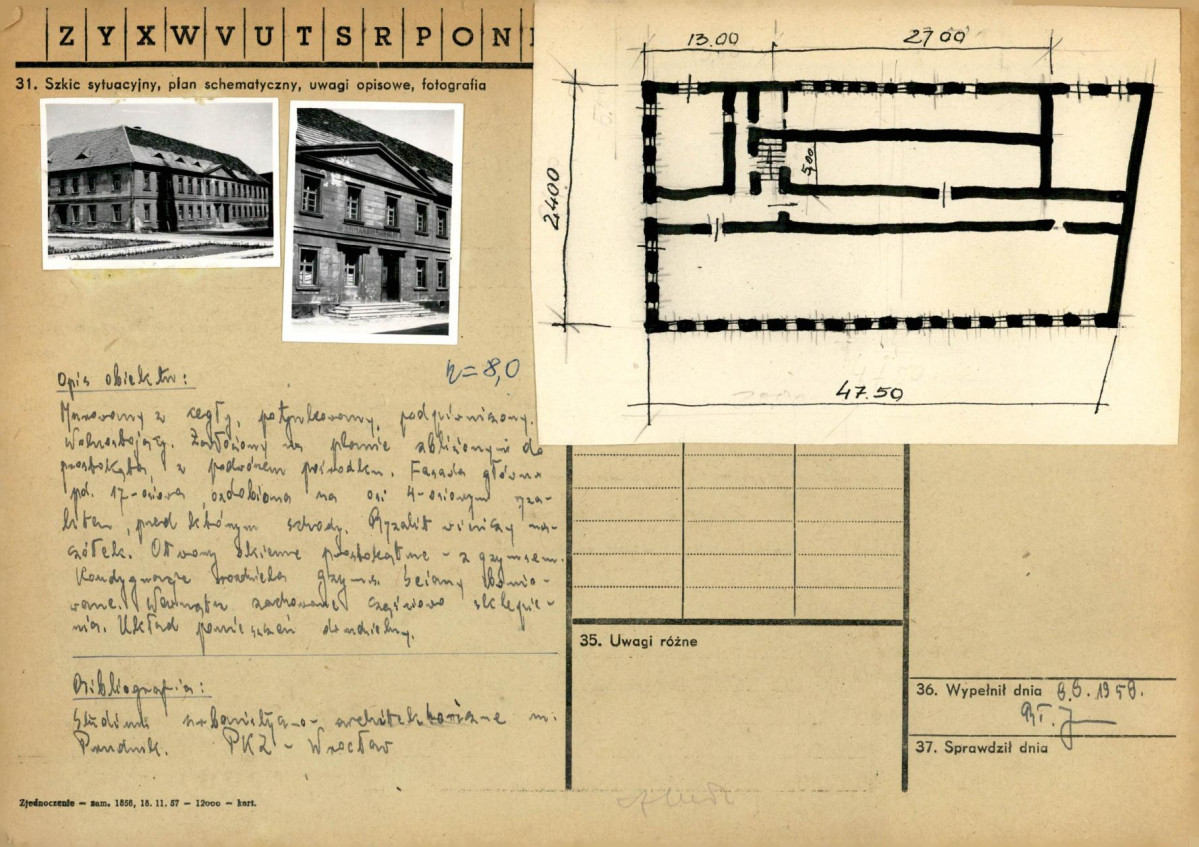 Z Y X W V U T S R P O N
31. Szkic sytuacyjny, plan schematyczny, uwagi opisowe, fotografia
13.00
27 00
5,00
2400
47.50
h=8,0
Opis obiektu:
Murowany z cegły, potynkowany, podpiwniczony.
Wolnostojący. Założony na planie zbliżonym do
prostokąta z podwórzem pośrodku. Fasada główna
pd. 17-osiowa, ozdobiona na osi 4-osiowym ryza-
litem, przed którym schody. Ryzalit wieńczy na-
czółek. Otwory okienne prostokątne - z gzymsem.
Kondygnacje rozdziela gzyms. Ściany bonio-
wane. Wewnątrz zachowane częściowo sklepie-
nia. Układ pomieszczeń
Bibliografia:
Studium urbanistyczno-architektoniczne m.
Prudnik. PKZ - Wrocław
35. Uwagi różne
36. Wypełnił dnia 8.9.1958.
37. Sprawdził dnia
Zjednoczenie – zam. 1856, 18. 11. 57 – 12000 – kart.